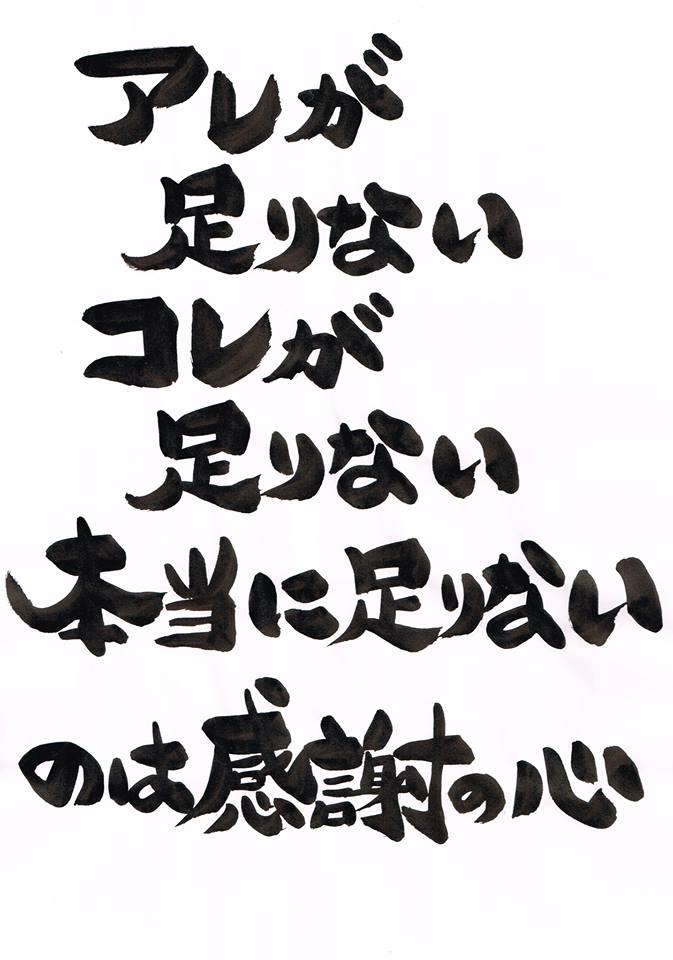 アレが
足りない
コレが
足りない
本当に足りない
のは感謝の心